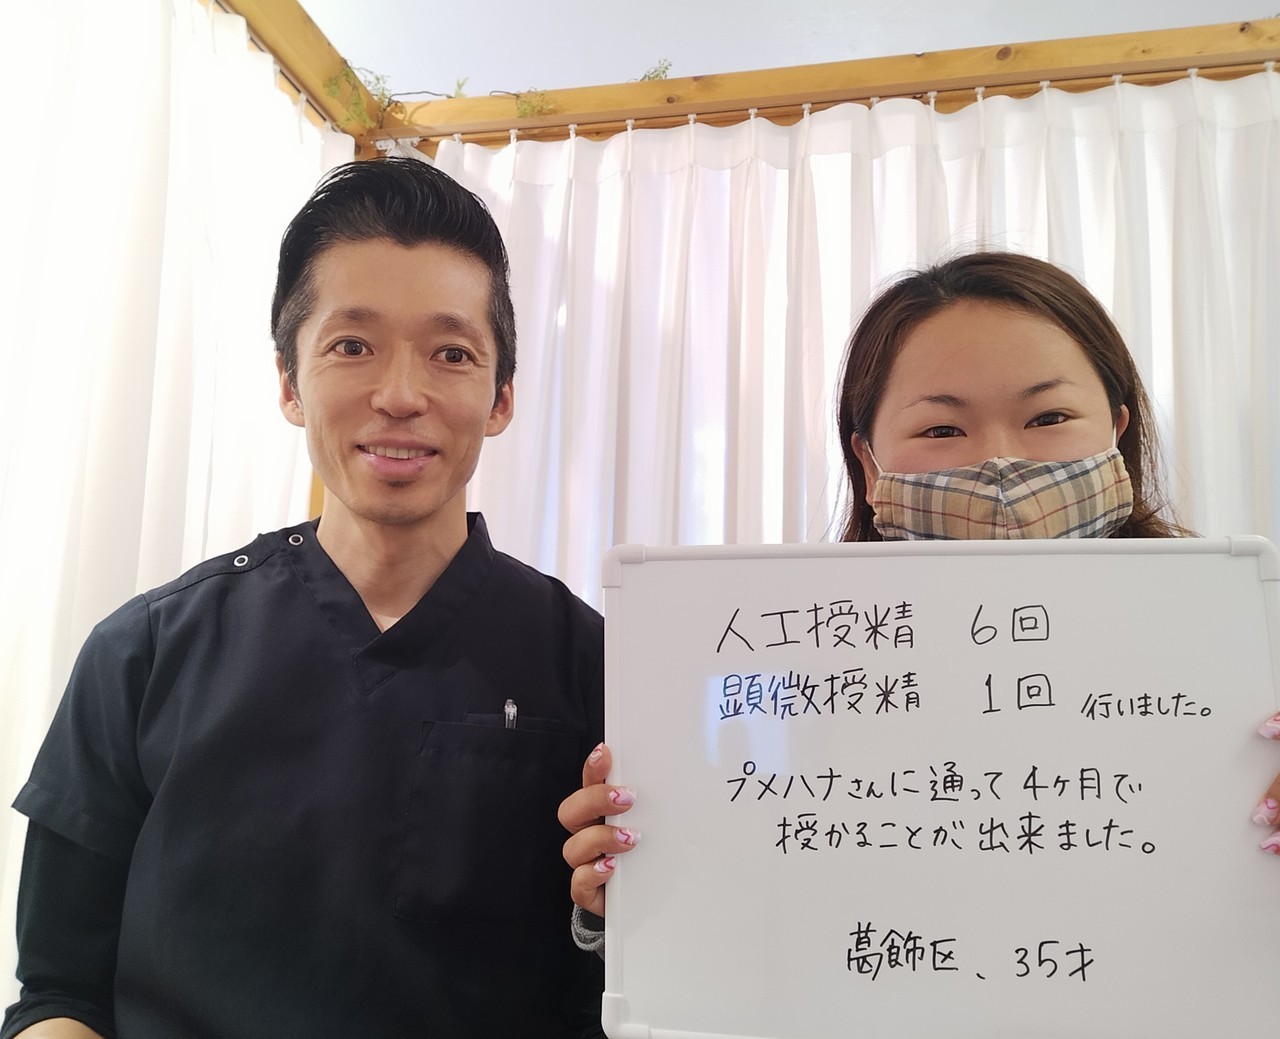 人工授精 6回
顕微授精 1回 行いました。
プメハナさんに通って4ヶ月で
授かることが出来ました。
葛飾区、35才